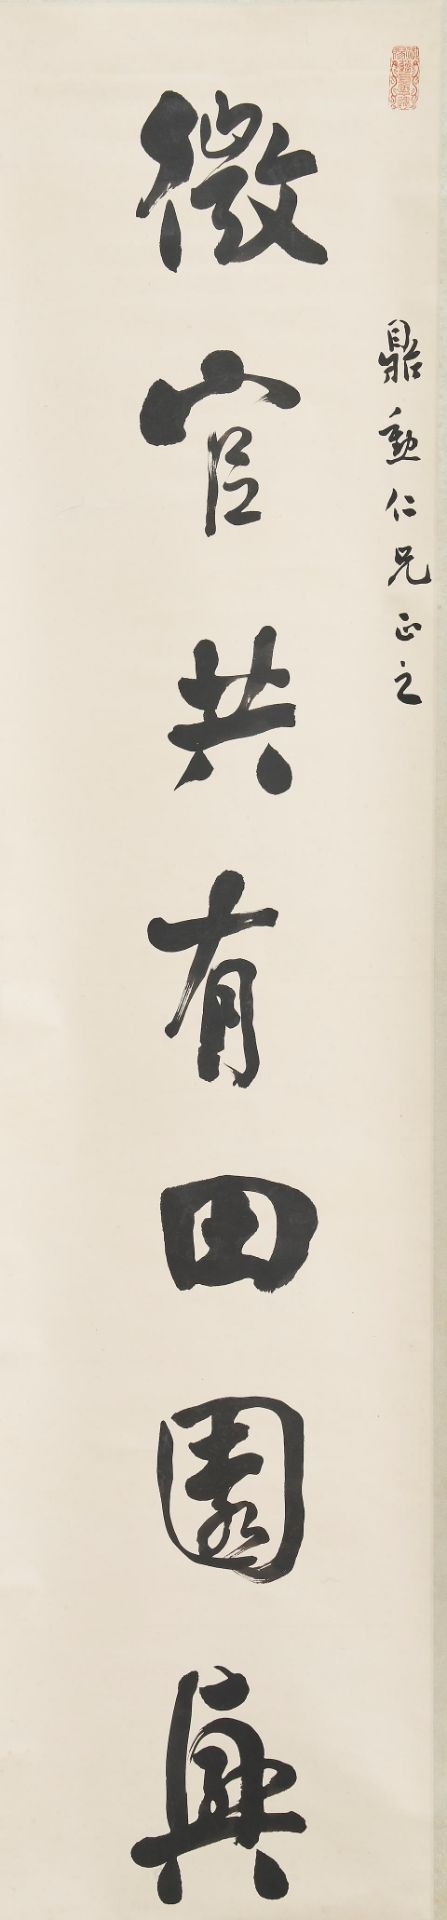 鼎勳仁兄正之
微官共有田園興